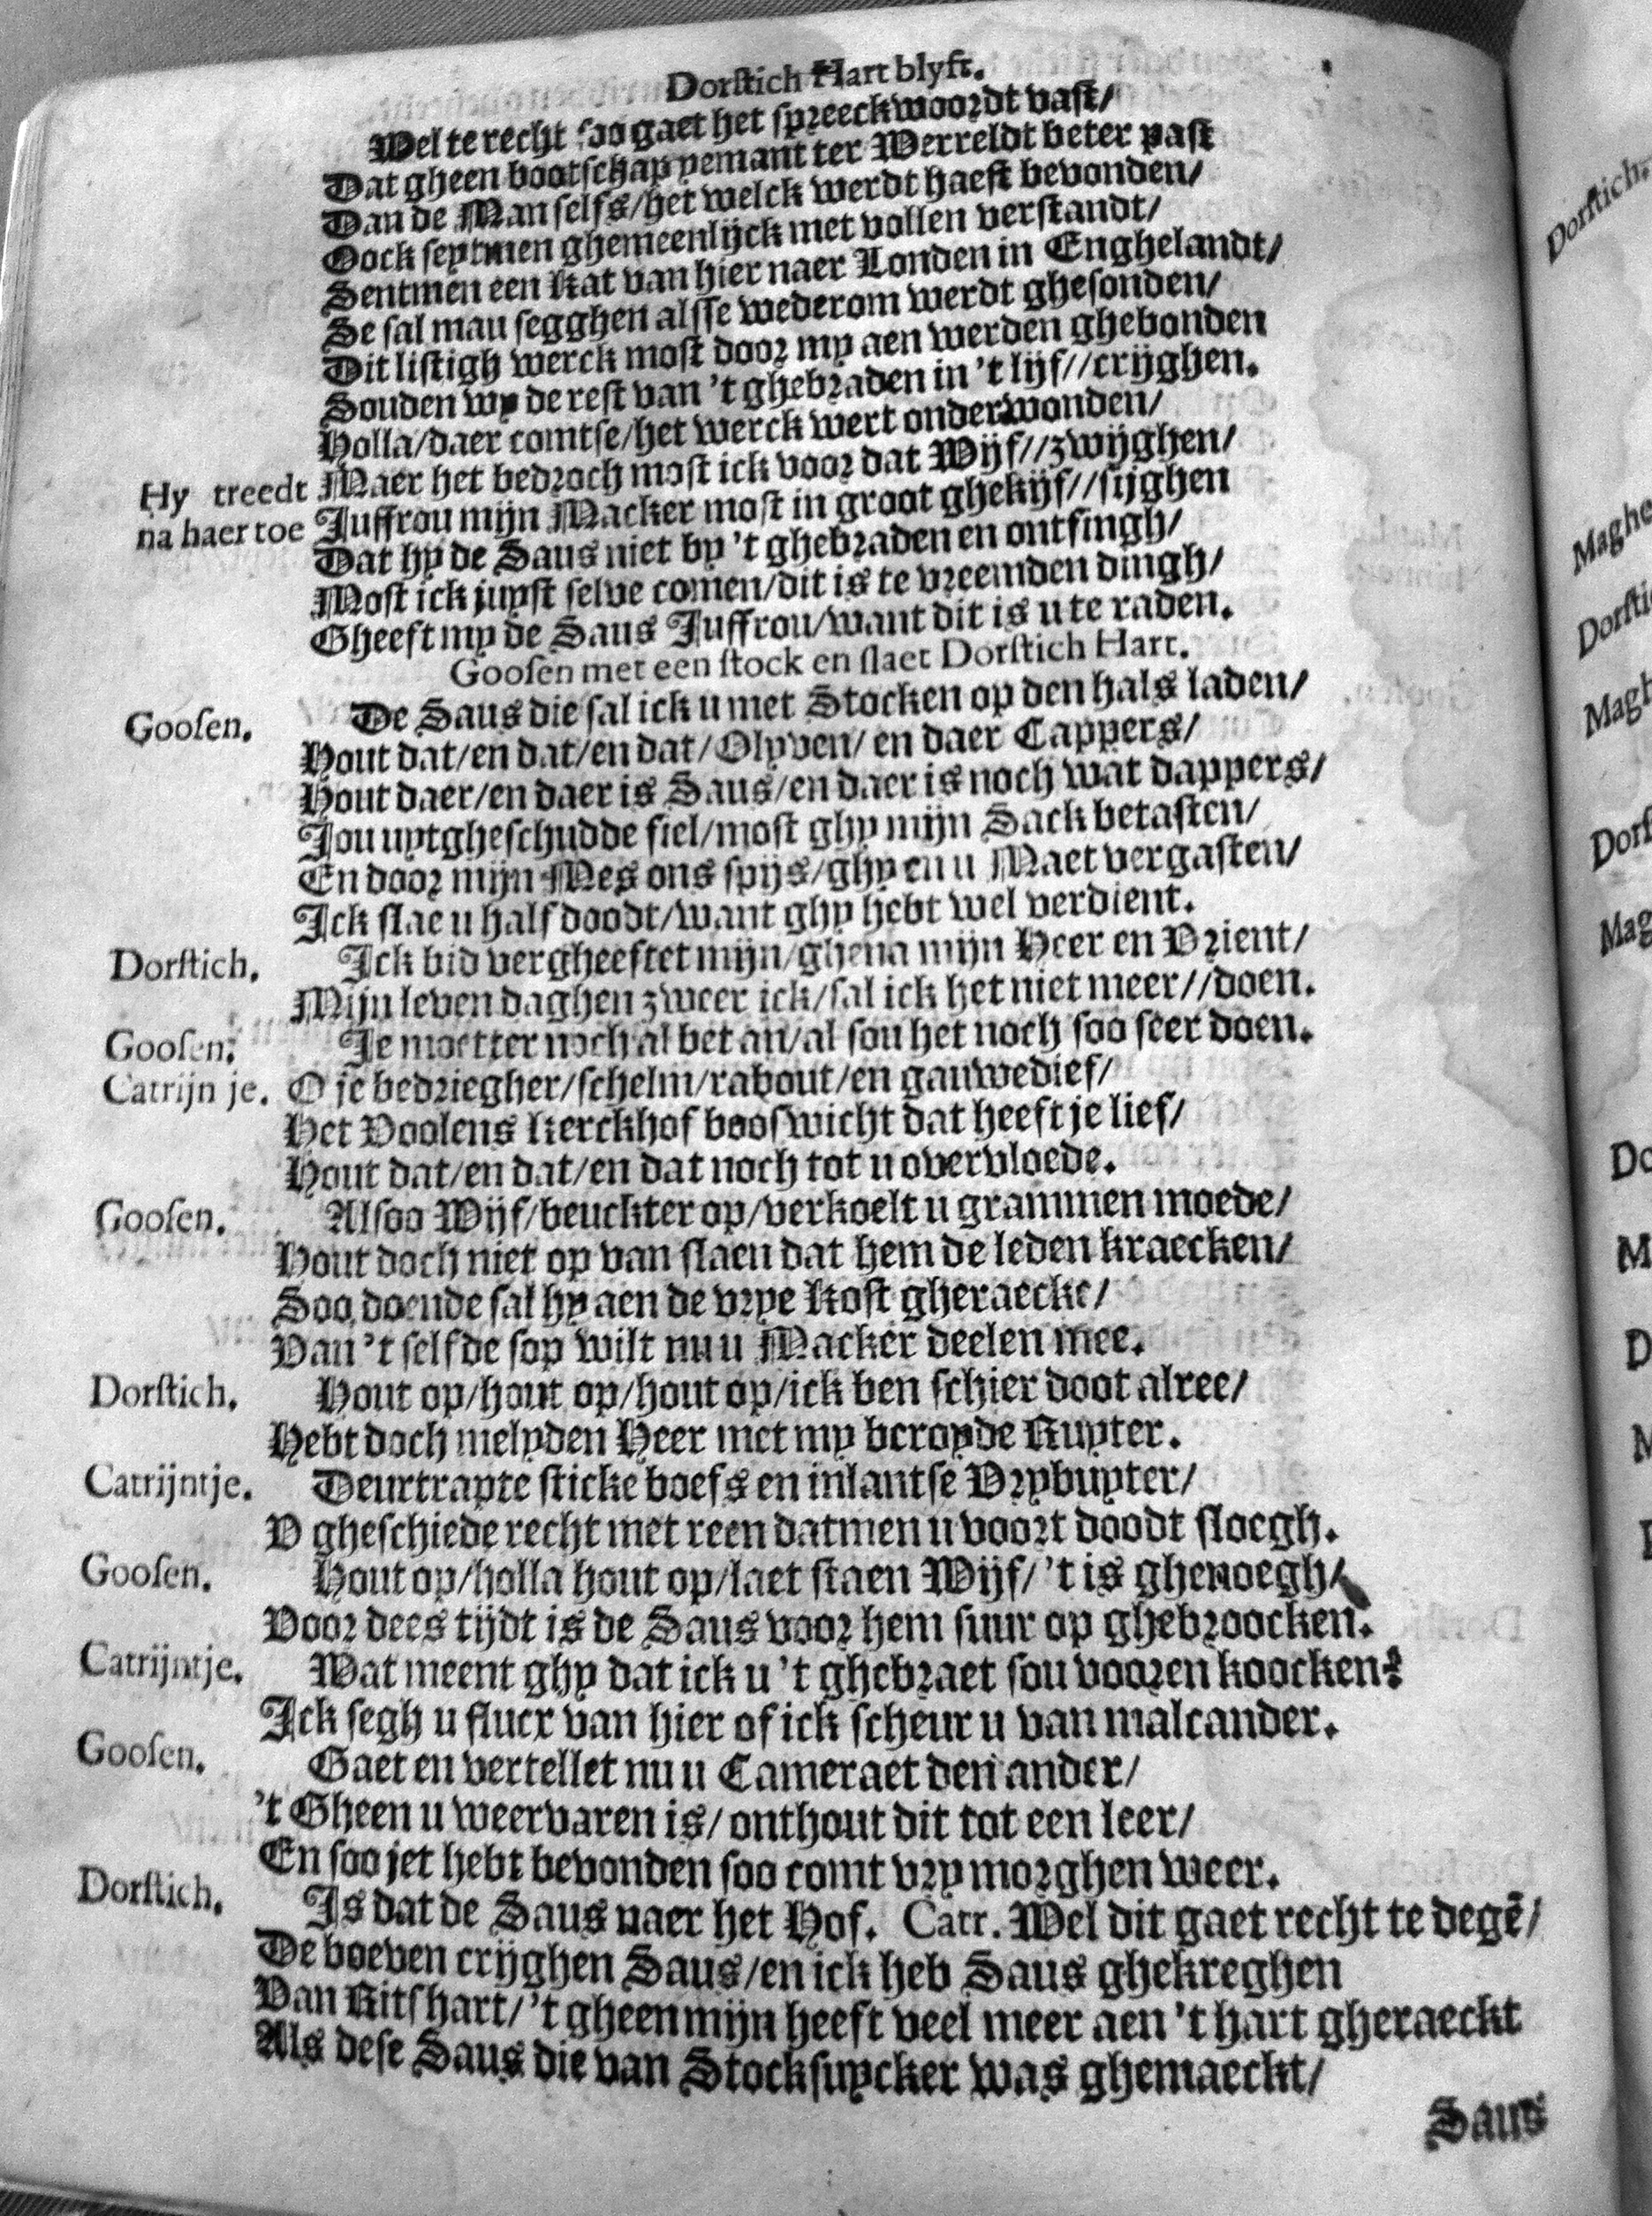 Dorſtich Hart blyft.
Wel te recht ſoo gaet het ſpreeckwoordt vaſt/
Dat gheen bootſchap yemant ter Werreldt beter paſt
Dan de Man ſelfs/het welck werdt haeſt bevonden/
Oock ſeytmen ghemeenlijck met vollen verſtandt/
Sentmen een Kat van hier naer Londen in Enghelandt/
Se ſal mau ſegghen alſſe wederom werdt gheſonden/
Dit liſtigh werck moſt door my aen werden ghebonden
Souden wy de reſt van 't ghebraden in 't lijf//crijghen.
Holla/daer comtſe/het werck wert onderwonden/
Hy treedt Maer het bedroch moſt ick voor dat Wijf//zwijghen/
na haer toe Juffrou mijn Macker moſt in groot ghekijf//ſijghen
Dat hy de Saus niet by 't ghebraden en ontfingh/
Moſt ick juyſt ſelve comen/dit is te vreemden dingh/
Gheeft my de Saus Juffrou/want dit is u te raden.
Gooſen met een ſtock en ſlaet Dorſtich Hart.
Gooſen. De Saus die ſal ick u met Stocken op den hals laden/
Hout dat/en dat/en dat/Olyven/en daer Cappers/
Hout daer/en daer is Saus/en daer is noch wat dappers/
Jou uytgheſchudde fiel/moſt ghy mijn Sack betaſten/
En door mijn Mes ons ſpijs/ghy en u Maet vergaſten/
Ick ſlae u half doodt/want ghy hebt wel verdient.
Dorſtich. Ick bid vergheeftet mijn/ghena mijn Heer en Vrient/
Mijn leven daghen zweer ick/ſal ick het niet meer//doen.
Gooſen. Je moetter noch al bet an/al ſou het noch ſoo ſeer doen.
Catrijn je. O je bedriegher/ſchelm/rabout/en gauwedief/
Het Voolens Kerckhof booſwicht dat heeft je lief/
Hout dat/en dat/en dat noch tot u overvloede.
Gooſen. Alſoo Wijf/beuckter op/verkoelt u grammen moede/
Hout doch niet op van ſlaen dat hem de leden kraecken/
Soo doende ſal hy aen de vrye Koſt gheraecke/
Van 't ſelfde ſop wilt nu u Macker deelen mee.
Dorſtich. Hout op/hout op/hout op/ick ben ſchier doot alree/
Hebt doch melyden Heer met my beroyde Ruyter.
Catrijntje. Deurtrapte ſticke boefs en inlantſe Vrybuyter/
V gheſchiede recht met reen datmen u voort doodt ſloegh.
Gooſen. Hout op/holla hout op/laet ſtaen Wijf/'t is ghenoegh/
Voor dees tijdt is de Saus voor hem ſuur op ghebroocken.
Catrijntje. Wat meent ghy dat ick u 't ghebraet ſou vooren koocken?
Ick ſegh u flucx van hier of ick ſcheur u van malcander.
Gooſen. Gaet en vertellet nu u Cameraet den ander/
't Gheen u weervaren is/onthout dit tot een leer/
En ſoo jet hebt bevonden ſoo comt vry morghen weer.
Dorſtich. Is dat de Saus naer het Hof. Catr. Wel dit gaet recht te degē/
De boeven crijghen Saus/en ick heb Saus ghekreghen
Van Ritſhart/'t gheen mijn heeft veel meer aen 't hart gheraeckt
Als deſe Saus die van Stockſuycker was ghemaeckt/
Saus
Dorſtich.